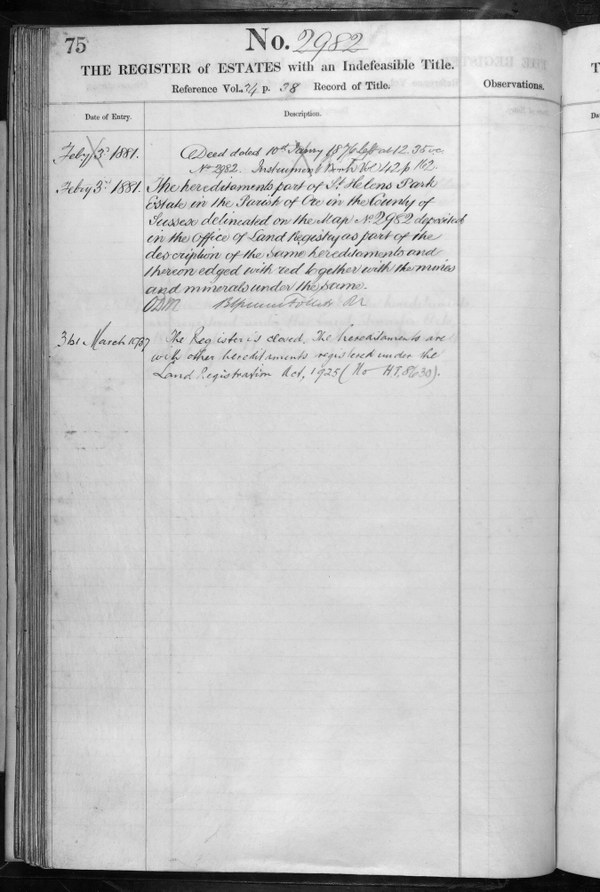 75
No. 2982
THE REGISTER of ESTATES with an Indefeasible Title.
Reference Vol. 24 p. 38 Record of Title.
Observations.
Date of Entry.
Description.
Feby 3rd 1881.
Deed dated 10th 1876 left at 12.35
No 2982. Instrument Book Vol 42 p 162
Feby 3rd 1881
The hereditaments part of St Helens Park
Estate in the Parish of Ore in the County of
Sussex delineated on the Map No 2982 deposited
in the Office of Land Registry as part of the
description of the same hereditaments and
thereon edged with red together with the mines
and minerals under the same.
31st March 1937
The Register is closed. The hereditaments are
with other hereditaments registered under the
Land Registration Act, 1925 (No HT. 8630).